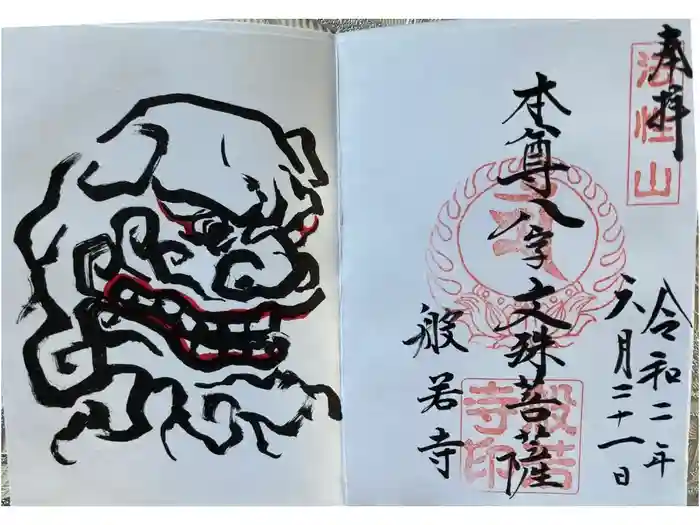 奉拝
法性山
令和二年
六月二十一日
本尊八字文殊菩薩
般若寺
般若寺印